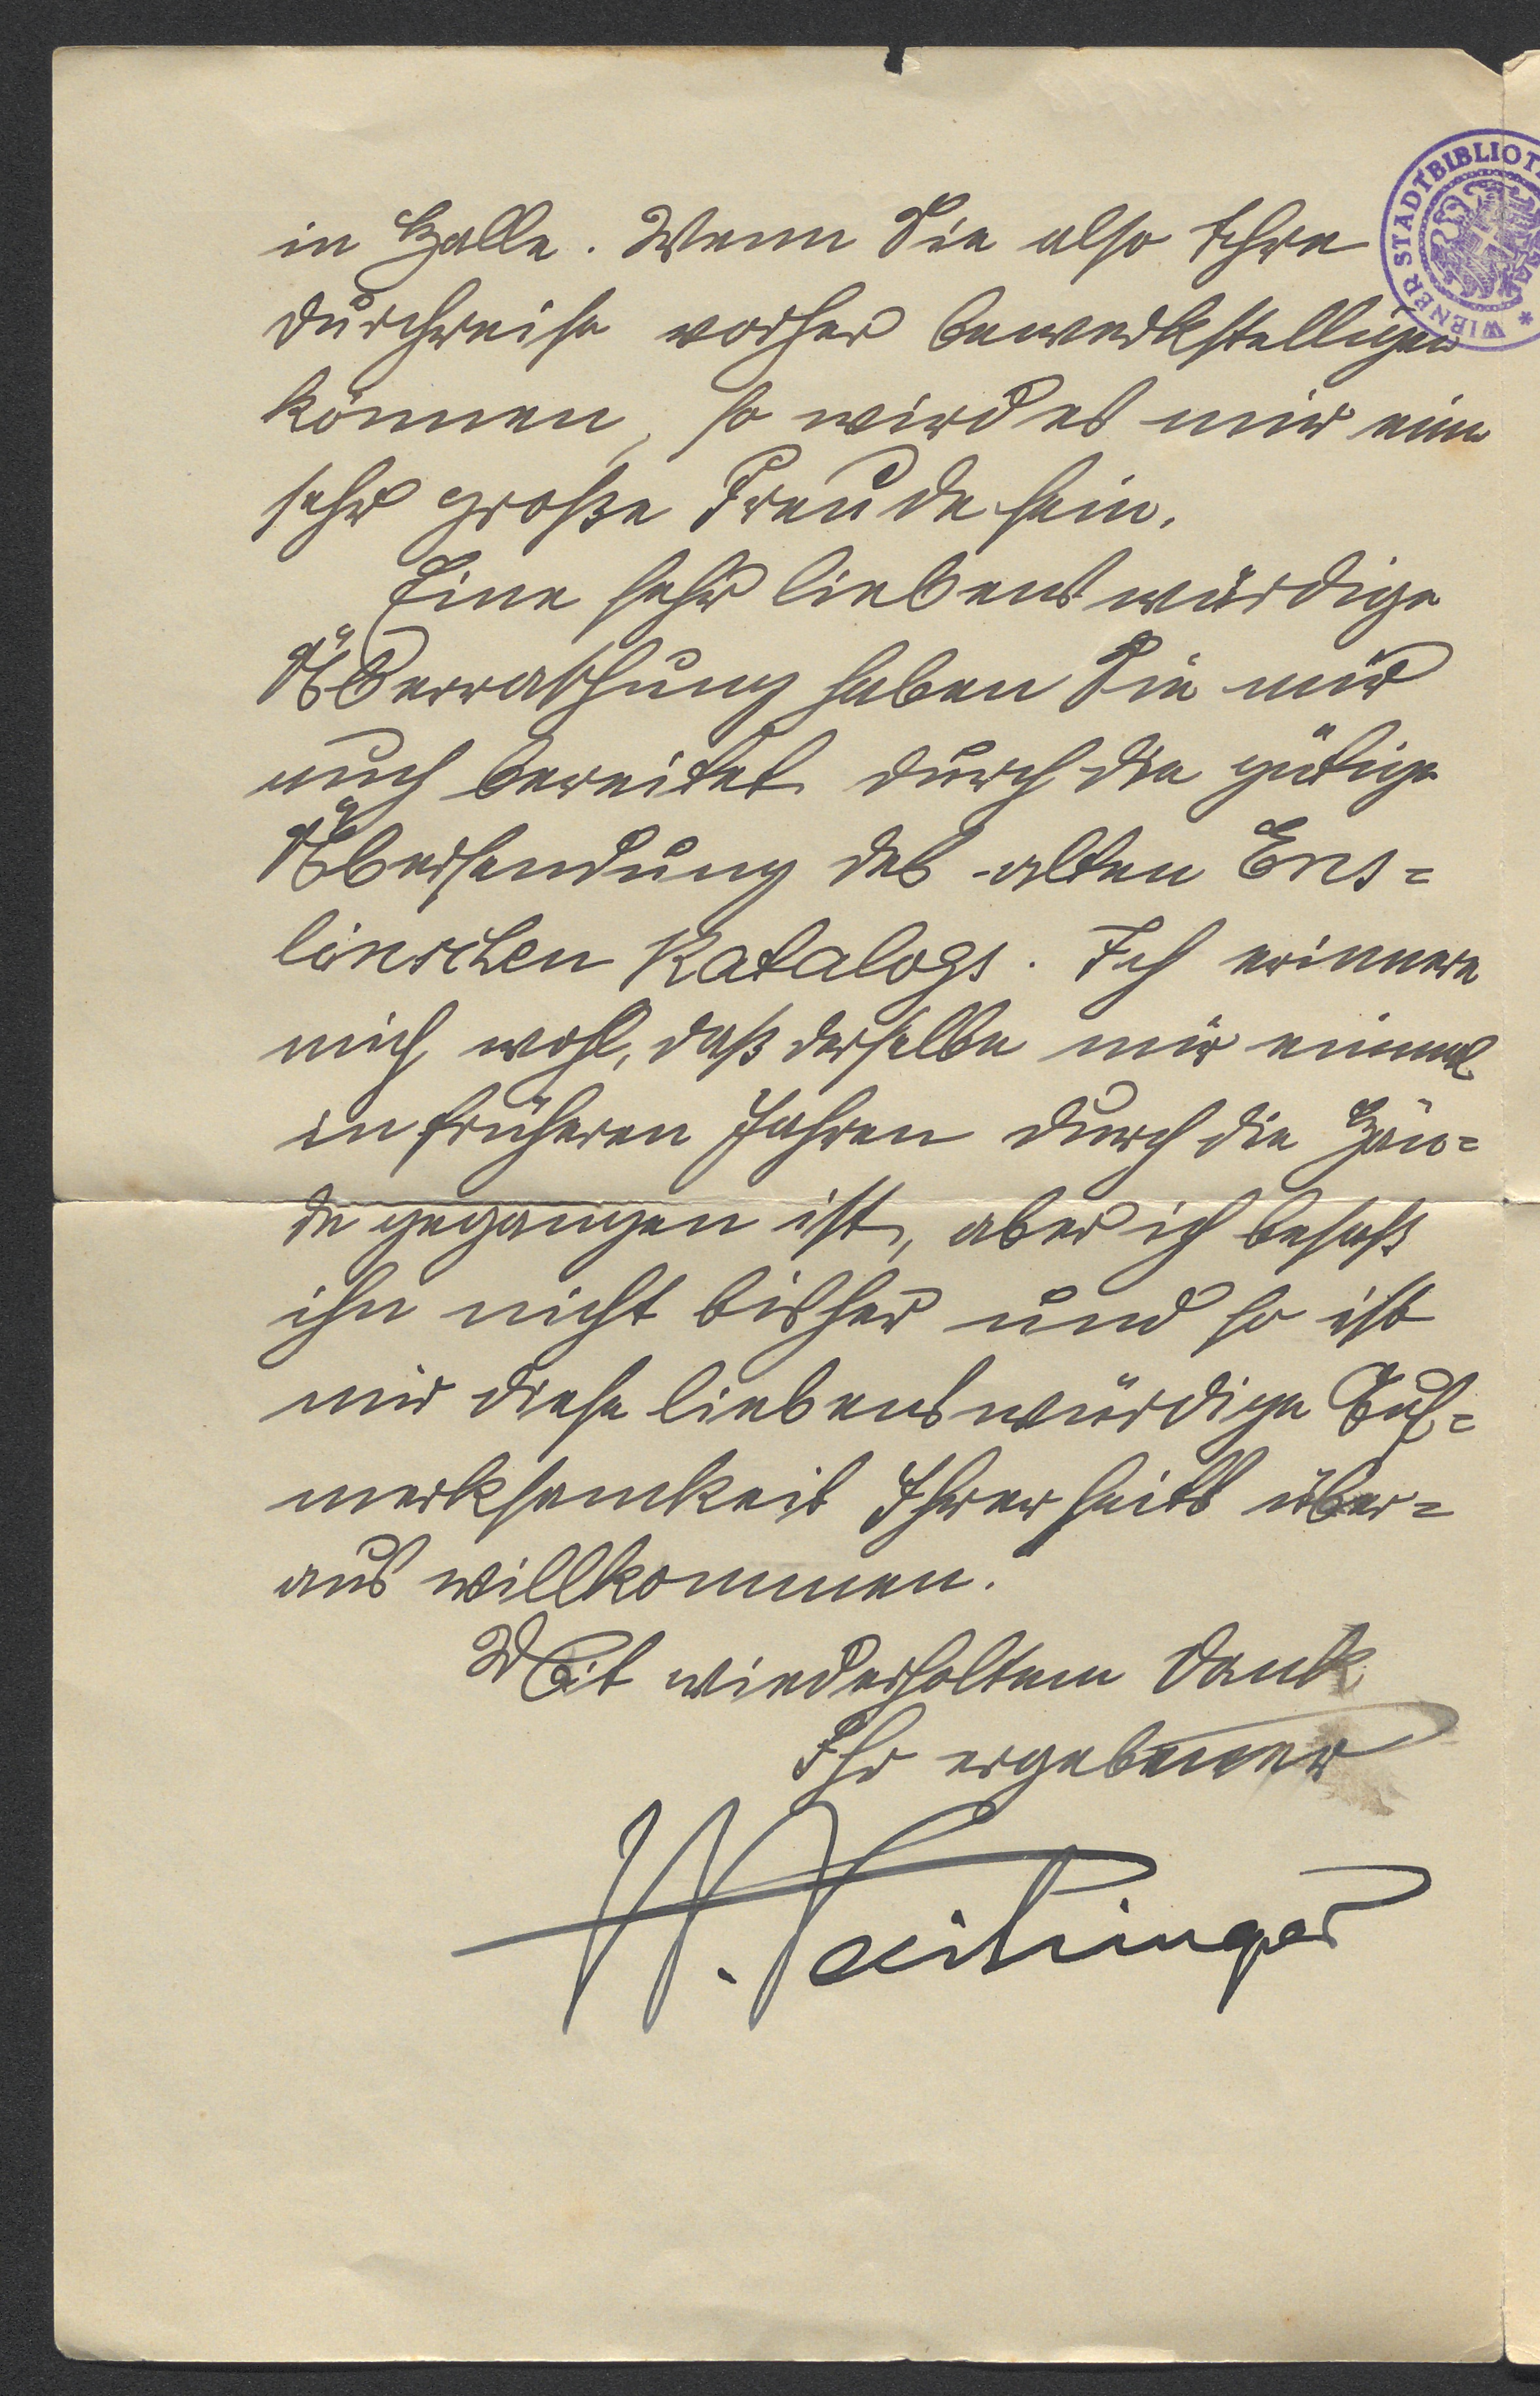 in Halle. Wenn Sie also Ihre
Durchreise vorher bewerkstelligen
können, so wird es mir eine
sehr große Freude sein.
Eine sehr liebenswürdige
Überraschung haben Sie mir
auch bereitet durch die gütige
Übersendung des alten Ens-
linschen Katalogs. Ich erinnere
mich wohl, daß derselbe mir einmal
in früheren Jahren durch die Hän-
de gegangen ist, aber ich besaß
ihn nicht bisher und so ist
mir diese liebenswürdige Auf-
merksamkeit Ihrerseits über-
aus willkommen.
Mit wiederholtem Dank
Ihr ergebener
H. Vaihinger
WIENER STADTBIBLIOT